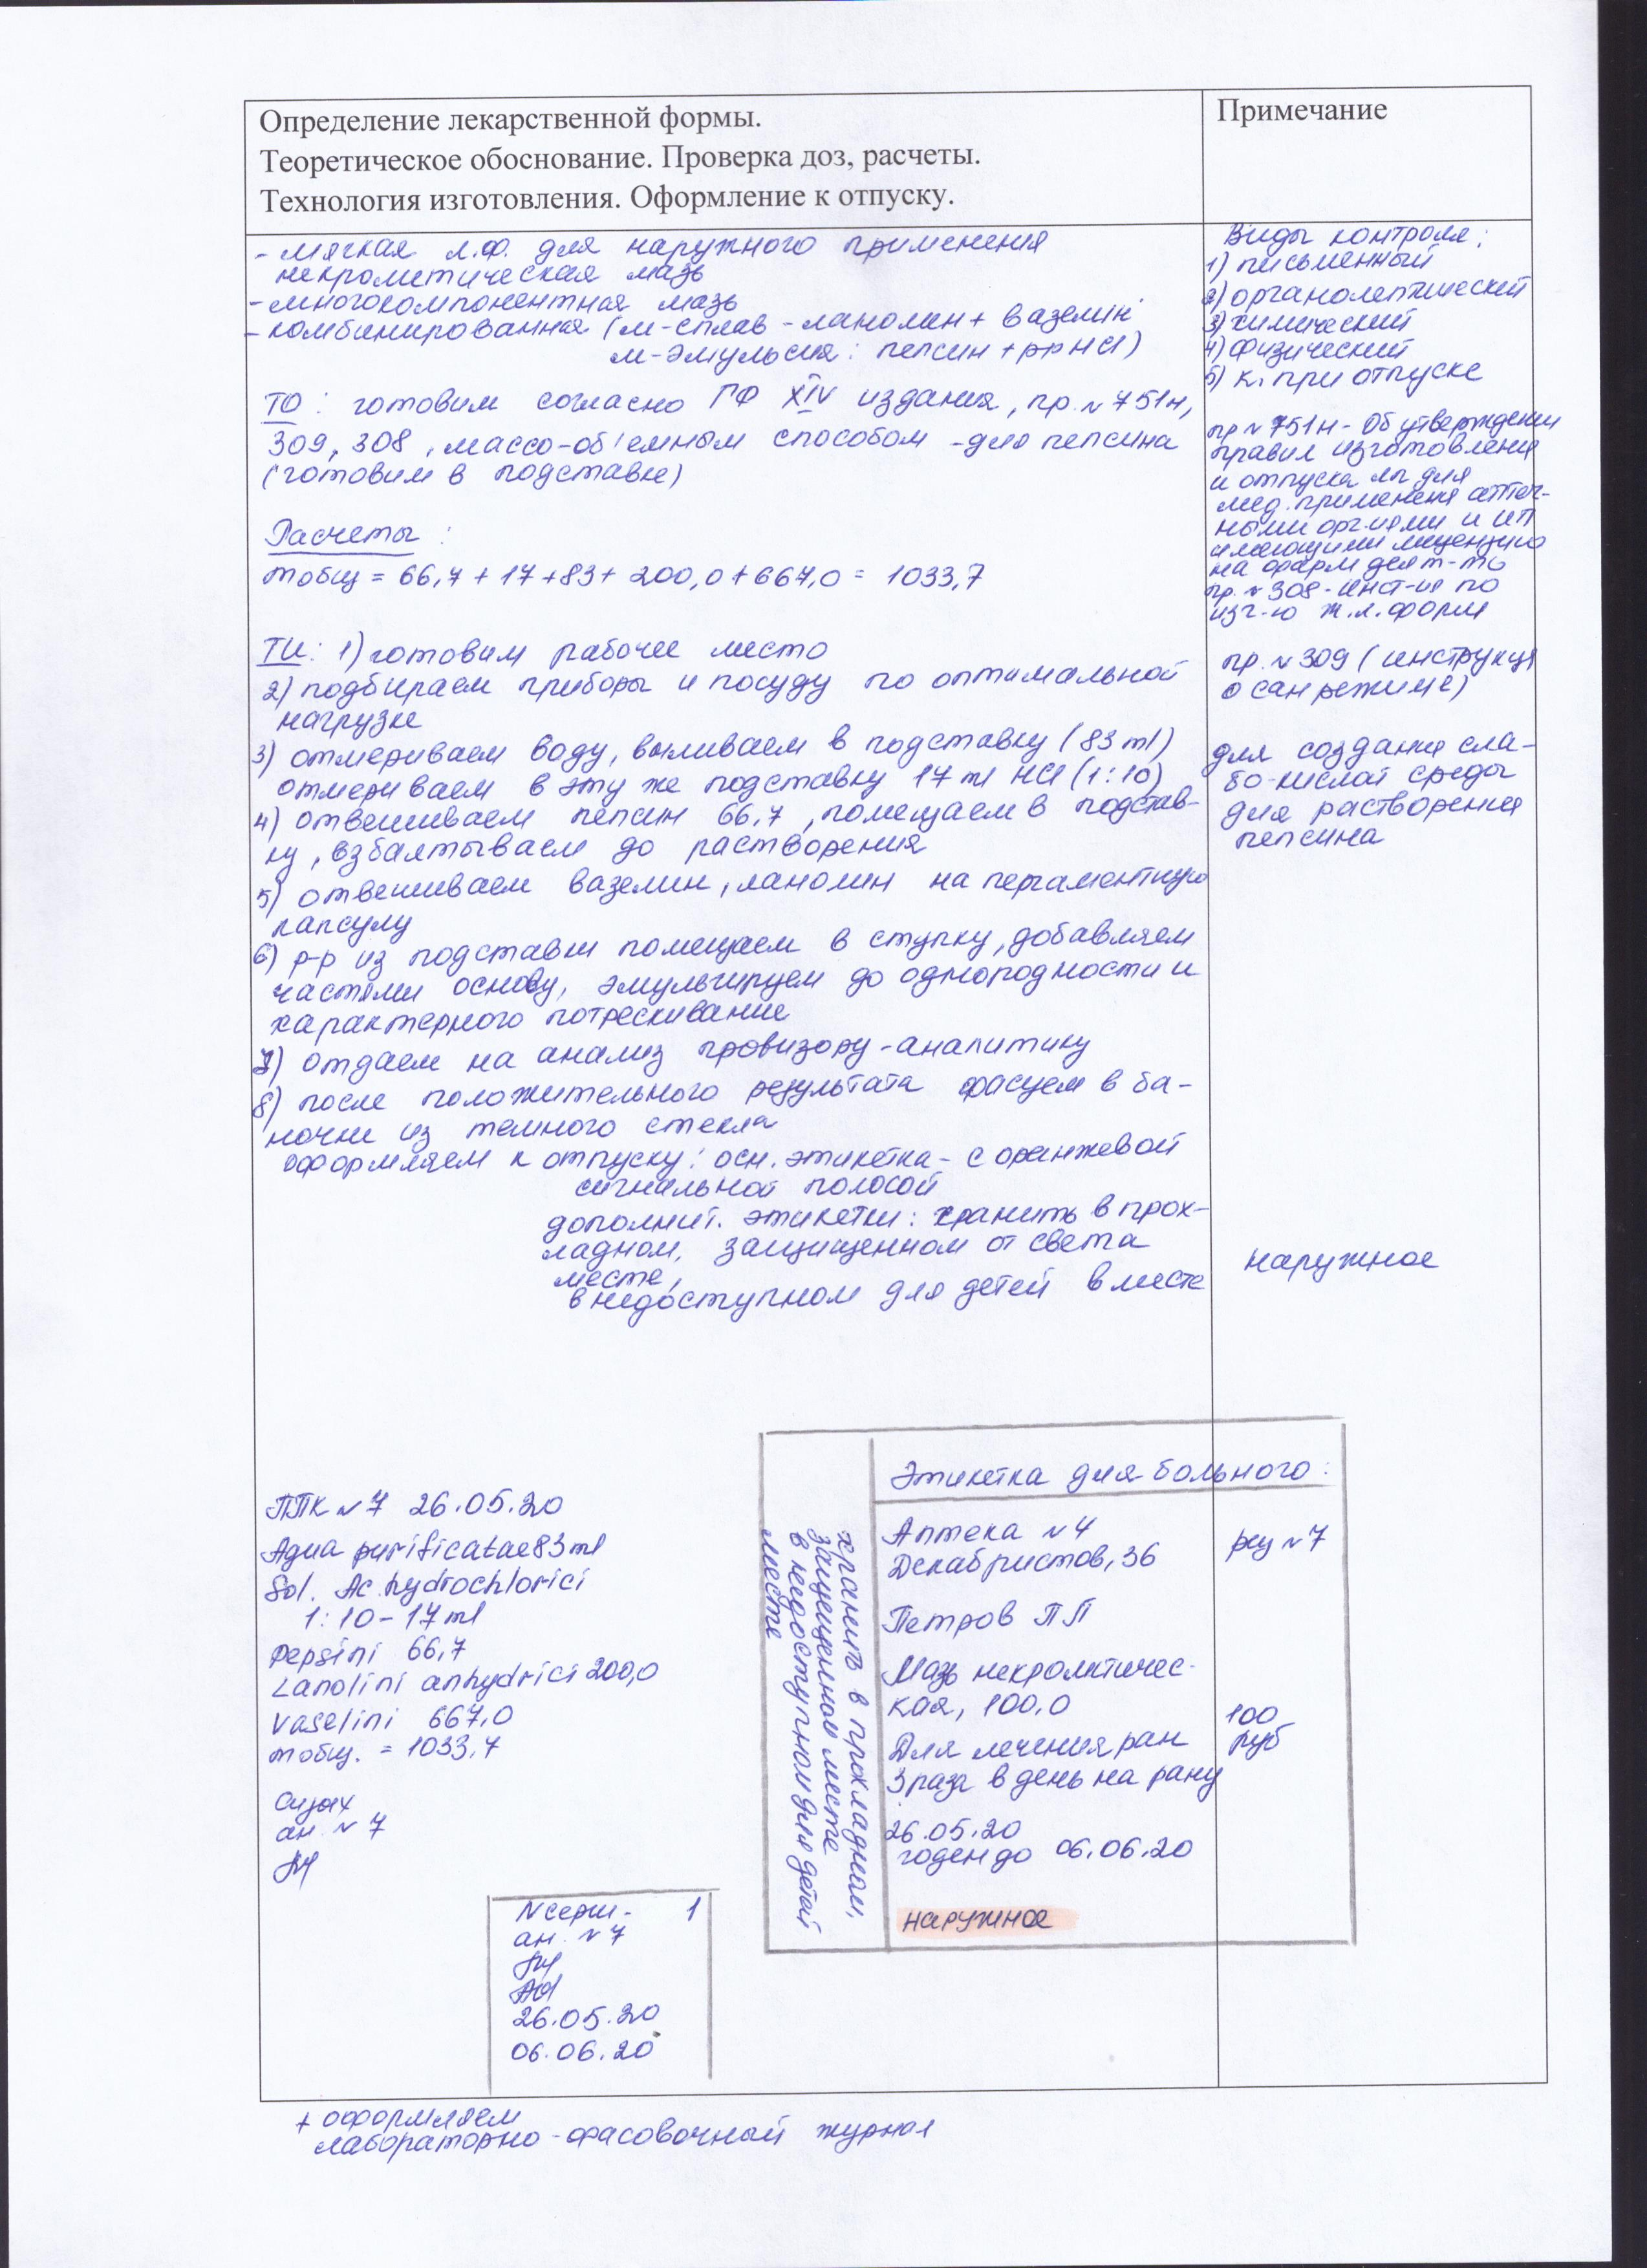 Определение лекарственной формы.
Теоретическое обоснование. Проверка доз, расчеты.
Технология изготовления. Оформление к отпуску.
Примечание
- мягкая л.ф. для наружного применения
некрометическая мазь
- многокомпонентная мазь
- комбинированная (м-сплав - ланолин + вазелин
м-эмульсия: пепсин + р-р HCl)
ТО: готовим согласно ГФ XIV издания, пр. №751н,
309, 308, массо-об'емным способом - для пепсина
(готовим в подставке)
Расчеты:
mобщ = 66,7 + 17 + 83 + 200,0 + 667,0 = 1033,7
ТИ: 1) готовим рабочее место
2) подбираем приборы и посуду по оптимальной
нагрузке
3) отмериваем воду, выливаем в подставку (83 ml)
отмериваем в эту же подставку 17 ml HCl (1:10)
4) отвешиваем пепсин 66,7, помещаем в подстав-
ку, взбалтываем до растворения
5) отвешиваем вазелин, ланолин на пергаментную
капсулу
6) р-р из подставки помещаем в ступку, добавляем
частями основу, эмульгируем до однородности и
характерного потрескивание
7) отдаем на анализ провизору-аналитику
8) после положительного результата фасуем в ба-
ночки из темного стекла
оформляем к отпуску: осн. этикетка - с оранжевой
сигнальной полосой
дополнит. этикетки: хранить в прох-
ладном, защищенном от света
месте,
в недоступном для детей в месте
Виды контроля:
1) письменный
2) органолептический
3) химический
4) физический
5) к. при отпуске
пр №751н - Об утверждении
правил изготовления
и отпуска лп для
мед. применения аптеч-
ными орг-иями и ИП
имеющими лицензию
на фарм деят-ть
пр. №308 - инст-ия по
изг-ю ж.л.форм
пр. №309 (инструкция
о санрежиме)
для создания сла-
бо-кислой среды
для растворения
пепсина
наружное
ППК №7 26.05.20
Aqua purificatae 83 ml
Sol. Ac. hydrochlorici
1:10 - 17 ml
Pepsini 66,7
Lanolini anhydrici 200,0
Vaselini 667,0
mобщ. = 1033,7
ан. №7
N серии - 1
ан. №7
26.05.20
06.06.20
хранить в прохладном,
защищенном месте
в недоступном для детей
месте
Этикетка для больного:
Аптека №4
Декабристов, 36
рец №7
Петров ПП
Мазь некролитичес-
кая, 100,0
100
руб
Для лечения ран
3 раза в день на рану
26.05.20
годен до 06.06.20
наружное
+ оформляем
лабораторно-фасовочный журнал